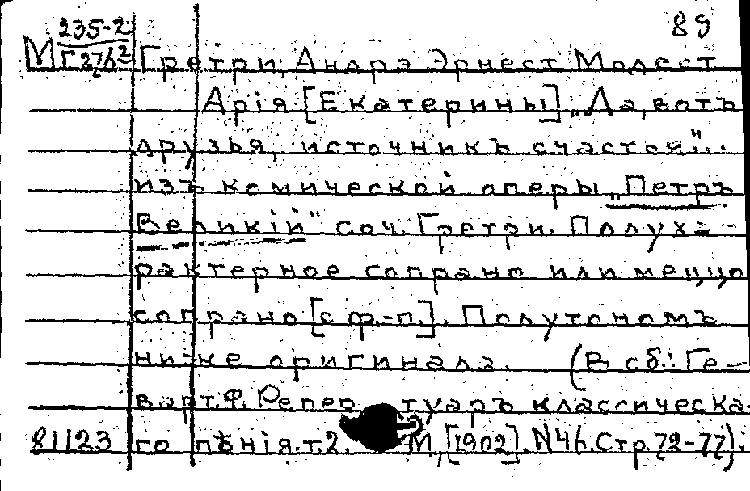 235-2 89
М Г276² Гретри, Андрэ Эрнест Модест
Арія [Екатерины] „Да, вотъ
друзья, источникъ счастья"...
изъ комической оперы „Петръ
Великій" соч. Гретри. Полуха-
рактерное сопрано или меццо
сопрано [с ф.-п.]. Полутономъ
ниже оригинала. (В сб.: Ге-
варт. Ф. Репертуаръ классическа-
81123 го пѣнія. т. 2. М, [1902]. N46. Стр. 72-77).